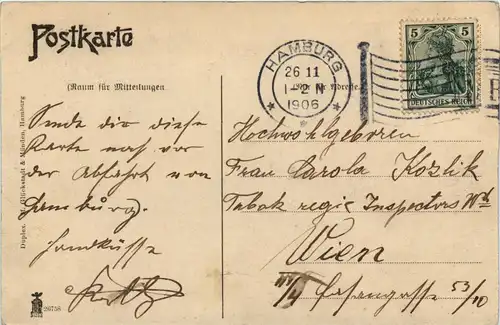 Postkarte
(Raum für Mitteilungen
für Adresse)
HAMBURG
26 11
1-2 N
1906
5 5
DEUTSCHES REICH
Sende dir diese
Karte noch vor
der Abfahrt von
Hamburg.
Handküsse
Hochwohlgeboren
Frau Carola Kozlik
Tabak regie Inspectors
Wien
Hasengasse 53/10
Glückstadt & Münden, Hamburg
26758